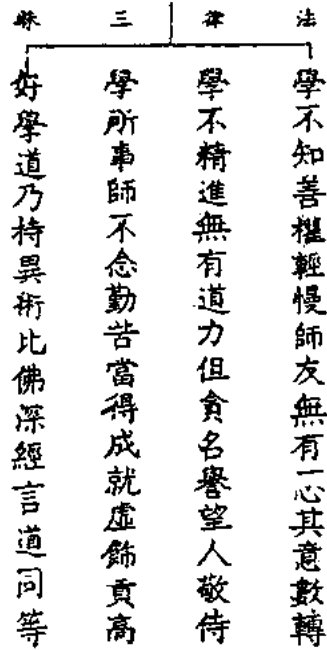 法
律
三
昧
學不知善權輕慢師友無有一心其意數轉
學不精進無有道力但貪名譽望人敬侍
學所事師不念勤苦當得成就虛飾貢高
好學道乃持異術比佛深經言道同等